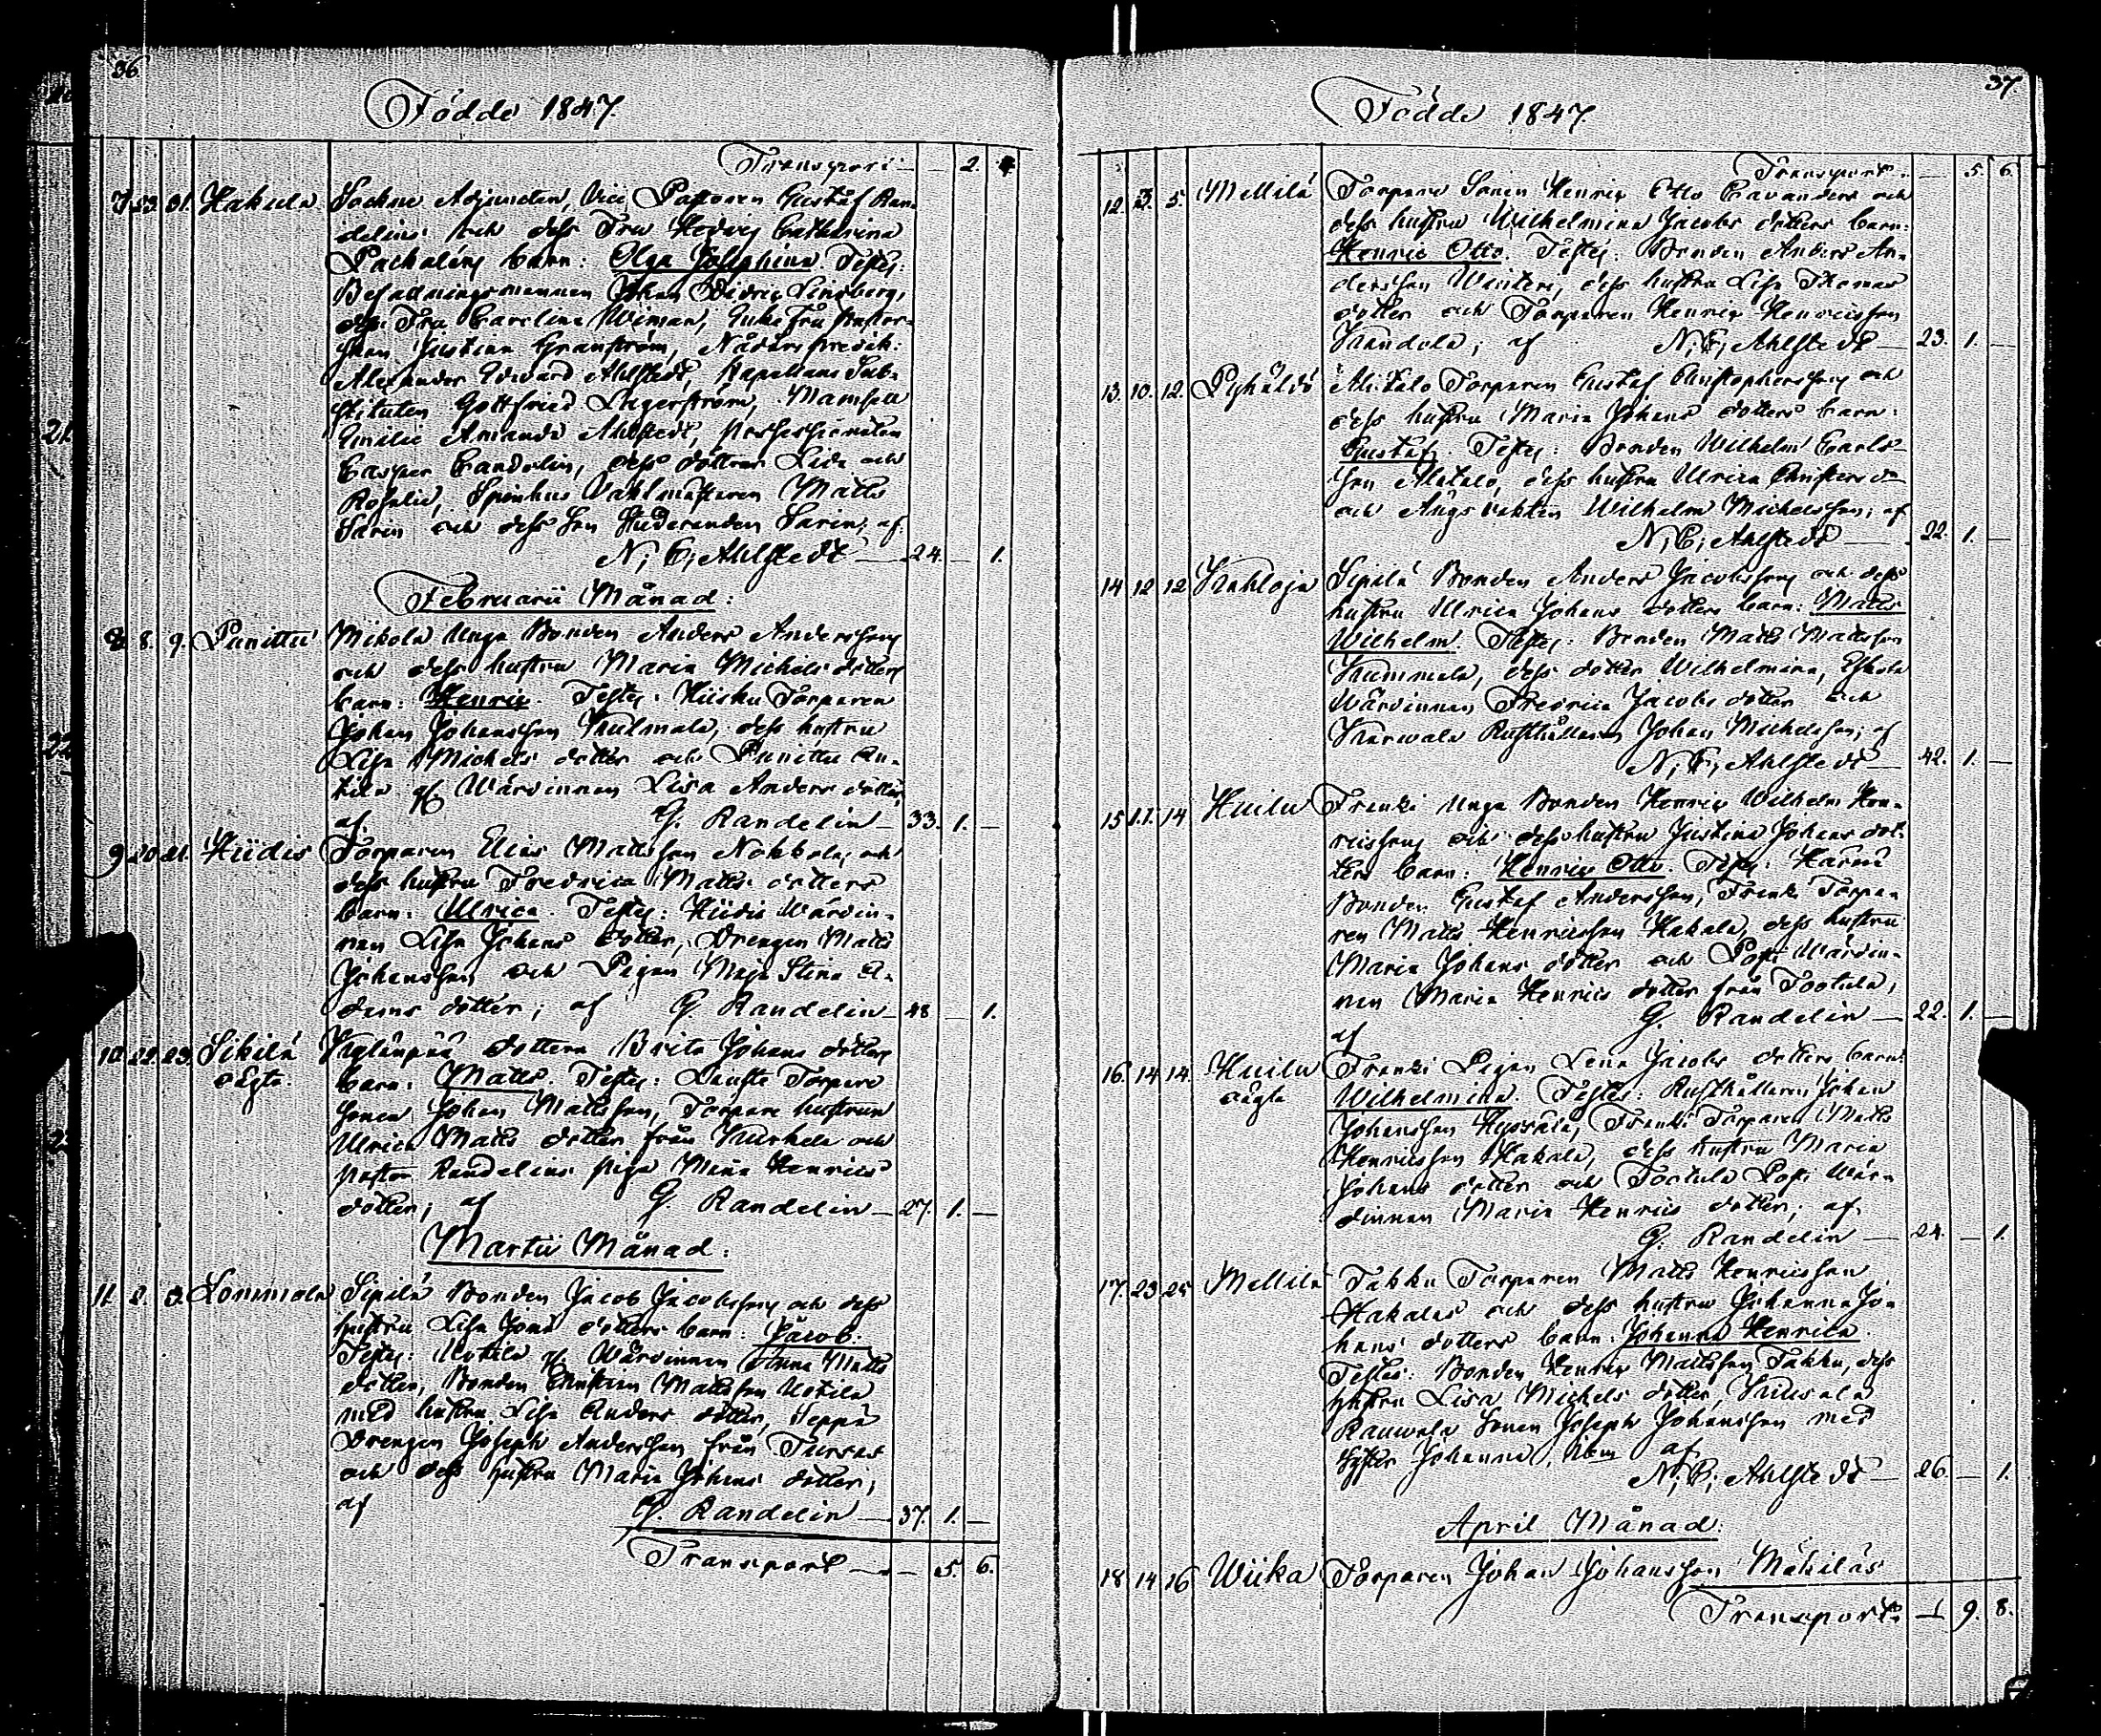 36
Födde 1847.
Transport — — 2. 4
7. 23. 31. Hakula Sockne Adjuncten, Vice Pastoren Gustaf Ran-
delins och dess Fru Hedvig Catharina
Pachaléns barn: Olga Josephina. Testes:
Befallningsmannen Johan Didric Lindberg,
dess Fru Carolina Wiman, Enke Fru Pastor-
skan Justina Granström, Nådårs predik:
Alexander Edvard Ahlstedt, Kapellans Sub-
stituten Gottfried Lagerström, Mamsell
Emilie Amanda Ahlstedt, Possessionaten
Casper Candolin, dess döttrar Lida och
Rosalie, Spinhus Vaktmästaren Matts
Sarin och dess son Studeranden Sarin; af
N. C. Ahlstedt — 24. — 1.
Februarii Månad:
8. 8. 9. Punittu Mikola Unga Bonden Anders Anderssons
och dess hustru Maria Michels dotters
barn: Henric. Testes: Hiisku Torparen
Johan Johansson Kulmala, dess hustru
Lisa Michels dotter och Punittu An-
tila Wärdinnan Lisa Anders dotter,
af G. Randelin — 33. 1. —
9. 20. 21. Hiidis Torparen Elias Mattsson Nokkola, och
dess hustru Fredrica Matts dotters
barn: Ulrica. Testes: Hiidis Wärdin-
nan Lisa Johans dotter, Drengen Matts
Johansson och Pigan Maja Stina A-
dams dotter; af G. Randelin — 48 — 1.
10. 22. 23. Sikilä oägta. dottern Brita Johans dotters
barn: Matts. Testes: Lauste Torpare
sonen Johan Mattsson, Torpare hustrun
Ulrica Matts dotter från Kurkela och
Pastor Randelins piga Mina Henrics
dotter; af G. Randelin — 27. 1. —
Martii Månad:
11. 2. 3. Lommola Sipilä Bonden Jacob Jacobssons och dess
hustru Lisa Johs dotters barn: Jacob.
Testes: Uotila Wärdinnan Anna Matts
dotter, Bonden Christian Mattsson Uotila
med hustru Lisa Anders dotter, Seppä
Drengen Joseph Andersson från Turras
och dess hustru Maria Johans dotter;
af G. Randelin — 37. 1. —
Transport — — 5. 6.
37.
Födde 1847
Transport. — 5. 6.
12. 3. 5. Mellilä Torpare Sonen Henric Otto Cavanders och
dess hustru Wilhelmina Jacobs dotters barn:
Henric Otto. Testes: Bonden Anders An-
dersson Winter, dess hustru Lisa Thomas
dotter och Torparen Henric Henricsson
Kandola; af N. C. Ahlstedt — 23. 1. —
13. 10. 12. Pyhäldö Alitalo Torparen Gustaf Christophersons och
dess hustru Maria Johans dotters barn:
Gustaf. Testes: Bonden Wilhelm Carls-
son Alatalo, dess hustru Ulrica Christers d:
och Ängs vakten Wilhelm Michelsson; af
N. C. Ahlstedt — 22. 1. —
14 12 12 Kahloja Sipilä Bonden Anders Jacobssons och dess
hustru Ulrica Johans dotters barn: Matts
Wilhelm. Testes: Bonden Matts Mattsson
Kummala, dess dotter Wilhelmina, Eskola
Wärdinnan Fredrica Jacobs dotter och
Karwala Rusthållaren Johan Michelsson; af
N. C. Ahlstedt — 42. 1. —
15 11. 14 Huilu Franki Unga Bonden Henric Wilhelm Hen-
ricssons och dess hustru Justina Johans dot-
ters barn: Henric Otto. Testes: Harni
Bonden Gustaf Andersson, Franki Torpa-
ren Matts Henricsson Hakala, dess hustru
Maria Johans dotter och Popi Wärdin-
nan Maria Henrics dotter från Tootula,
af G. Randelin — 22. 1. —
16. 14 14. Huilu oägta Franki Pigan Lena Jacobs dotters barn:
Wilhelmina. Testes: Rusthållaren Johan
Johansson Hyssälä, Franki Torparen Matts
Henricsson Hakala, dess hustru Maria
Johans dotter och Tootula Popi Wär-
dinnan Maria Henrics dotter; af
G. Randelin — 24. — 1.
17. 23. 25 Mellilä Takku Torparen Matts Henricsson
Hakalas och dess hustru Johanna Jo-
hans dotters barn: Johanna Henrica.
Testes: Bonden Henric Mattsson Takku, dess
hustru Lisa Michels dotter,
Rauwola Sonen Joseph Johansson med
Syster Johanna, ibm af
N. C. Ahlstedt — 26. — 1.
April Månad:
18 14 16 Wiika Torparen Johan Johansson Mäkiläs
Transport. — 9. 8.